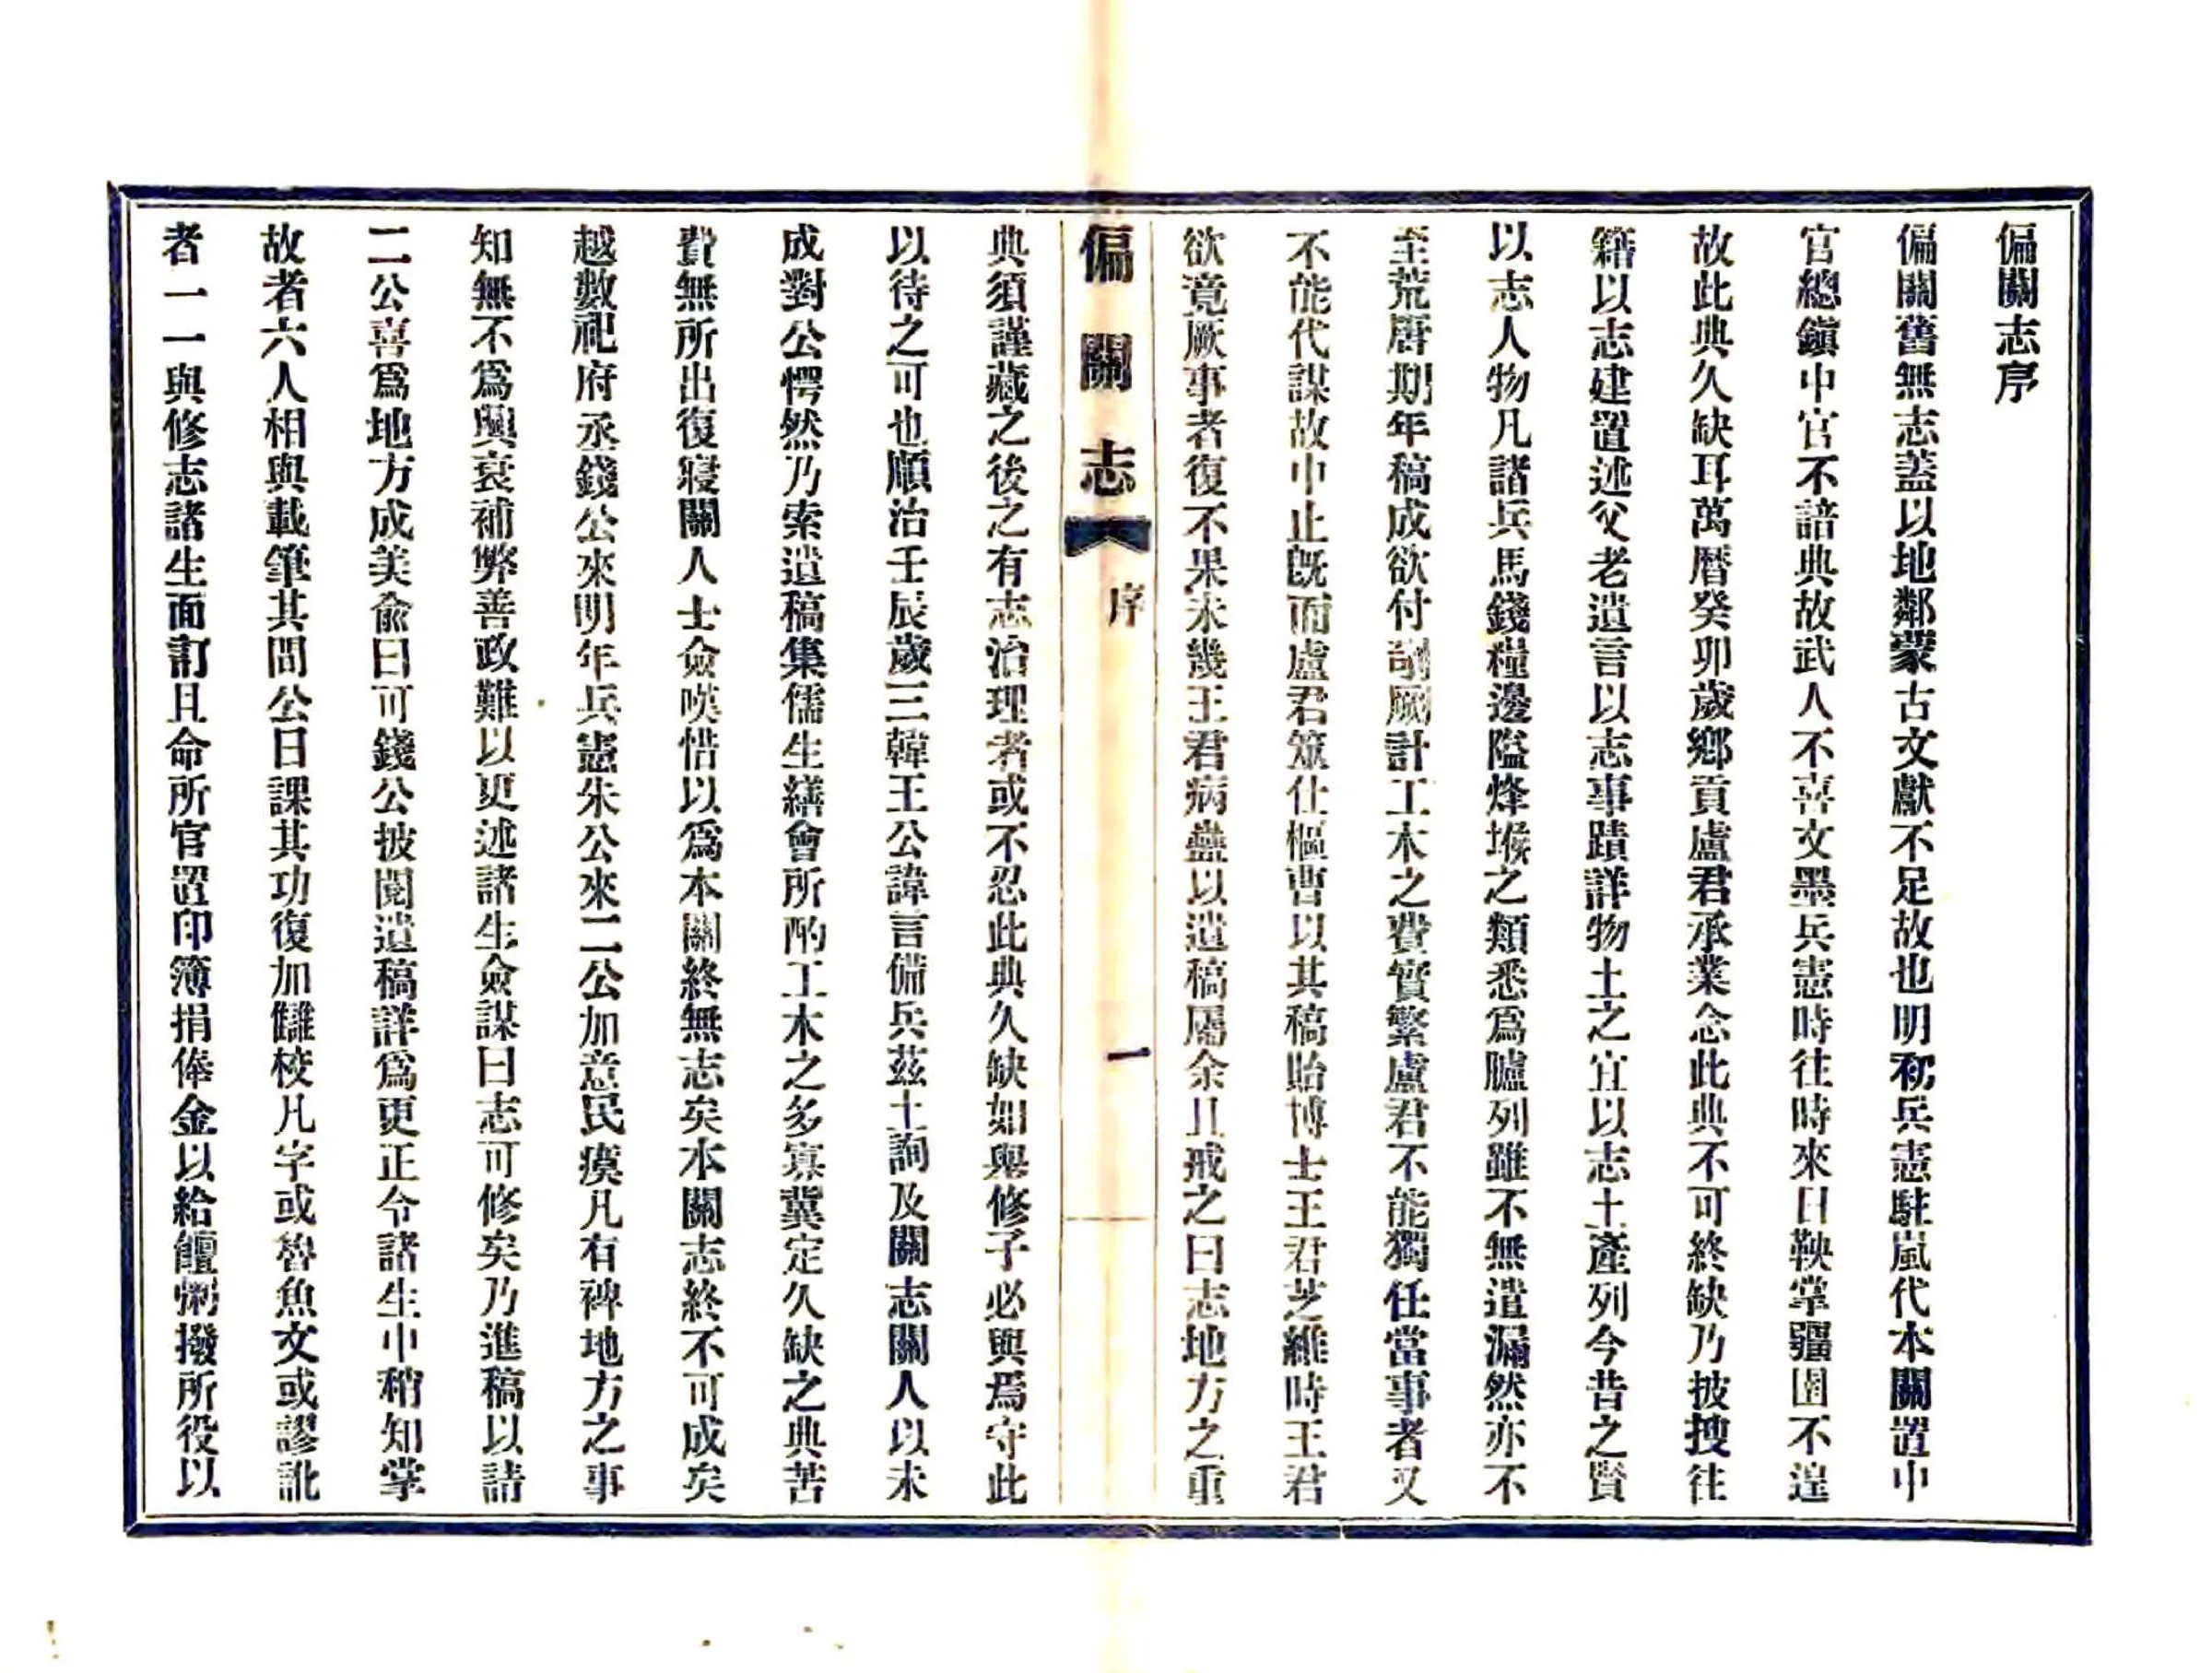 偏關志序
偏關舊無志蓋以地鄰蒙古文獻不足故也明初兵憲駐嵐代本關置中
官總鎭中官不諳典故武人不喜文墨兵憲時往時來日鞅掌疆圉不遑
故此典久缺耳萬曆癸卯歲鄉貢盧君承業念此典不可終缺乃披搜往
籍以志建置述父老遺言以志事蹟詳物土之宜以志土產列今昔之賢
以志人物凡諸兵馬錢糧邊隘烽堠之類悉爲臚列雖不無遺漏然亦不
至荒唐期年稿成欲付剞劂計工木之費實繁盧君不能獨任當事者又
不能代謀故中止旣而盧君筮仕樞曹以其稿貽博士王君芝維時王君
欲竟厥事者復不果未幾王君病蠱以遺稿屬余且戒之曰志地方之重
偏關志 序 一
典須謹藏之後之有志治理者或不忍此典久缺如與修子必與焉守此
以待之可也順治壬辰歲三韓王公諱言備兵茲土詢及關志關人以未
成對公愕然乃索遺稿集儒生繕會所酌工木之多寡冀定久缺之典苦
費無所出復寢關人士僉嘆惜以爲本關終無志矣本關志終不可成矣
越數祀府丞錢公來明年兵憲朱公來二公加意民瘼凡有裨地方之事
知無不爲興衰補弊善政難以更述諸生僉謀曰志可修矣乃進稿以請
二公喜爲地方成美僉曰可錢公披閱遺稿詳爲更正令諸生中稍知掌
故者六人相與載筆其間公日課其功復加讎校凡字或魯魚文或謬訛
者一一與修志諸生面訂且命所官置印簿捐俸金以給饘粥撥所役以